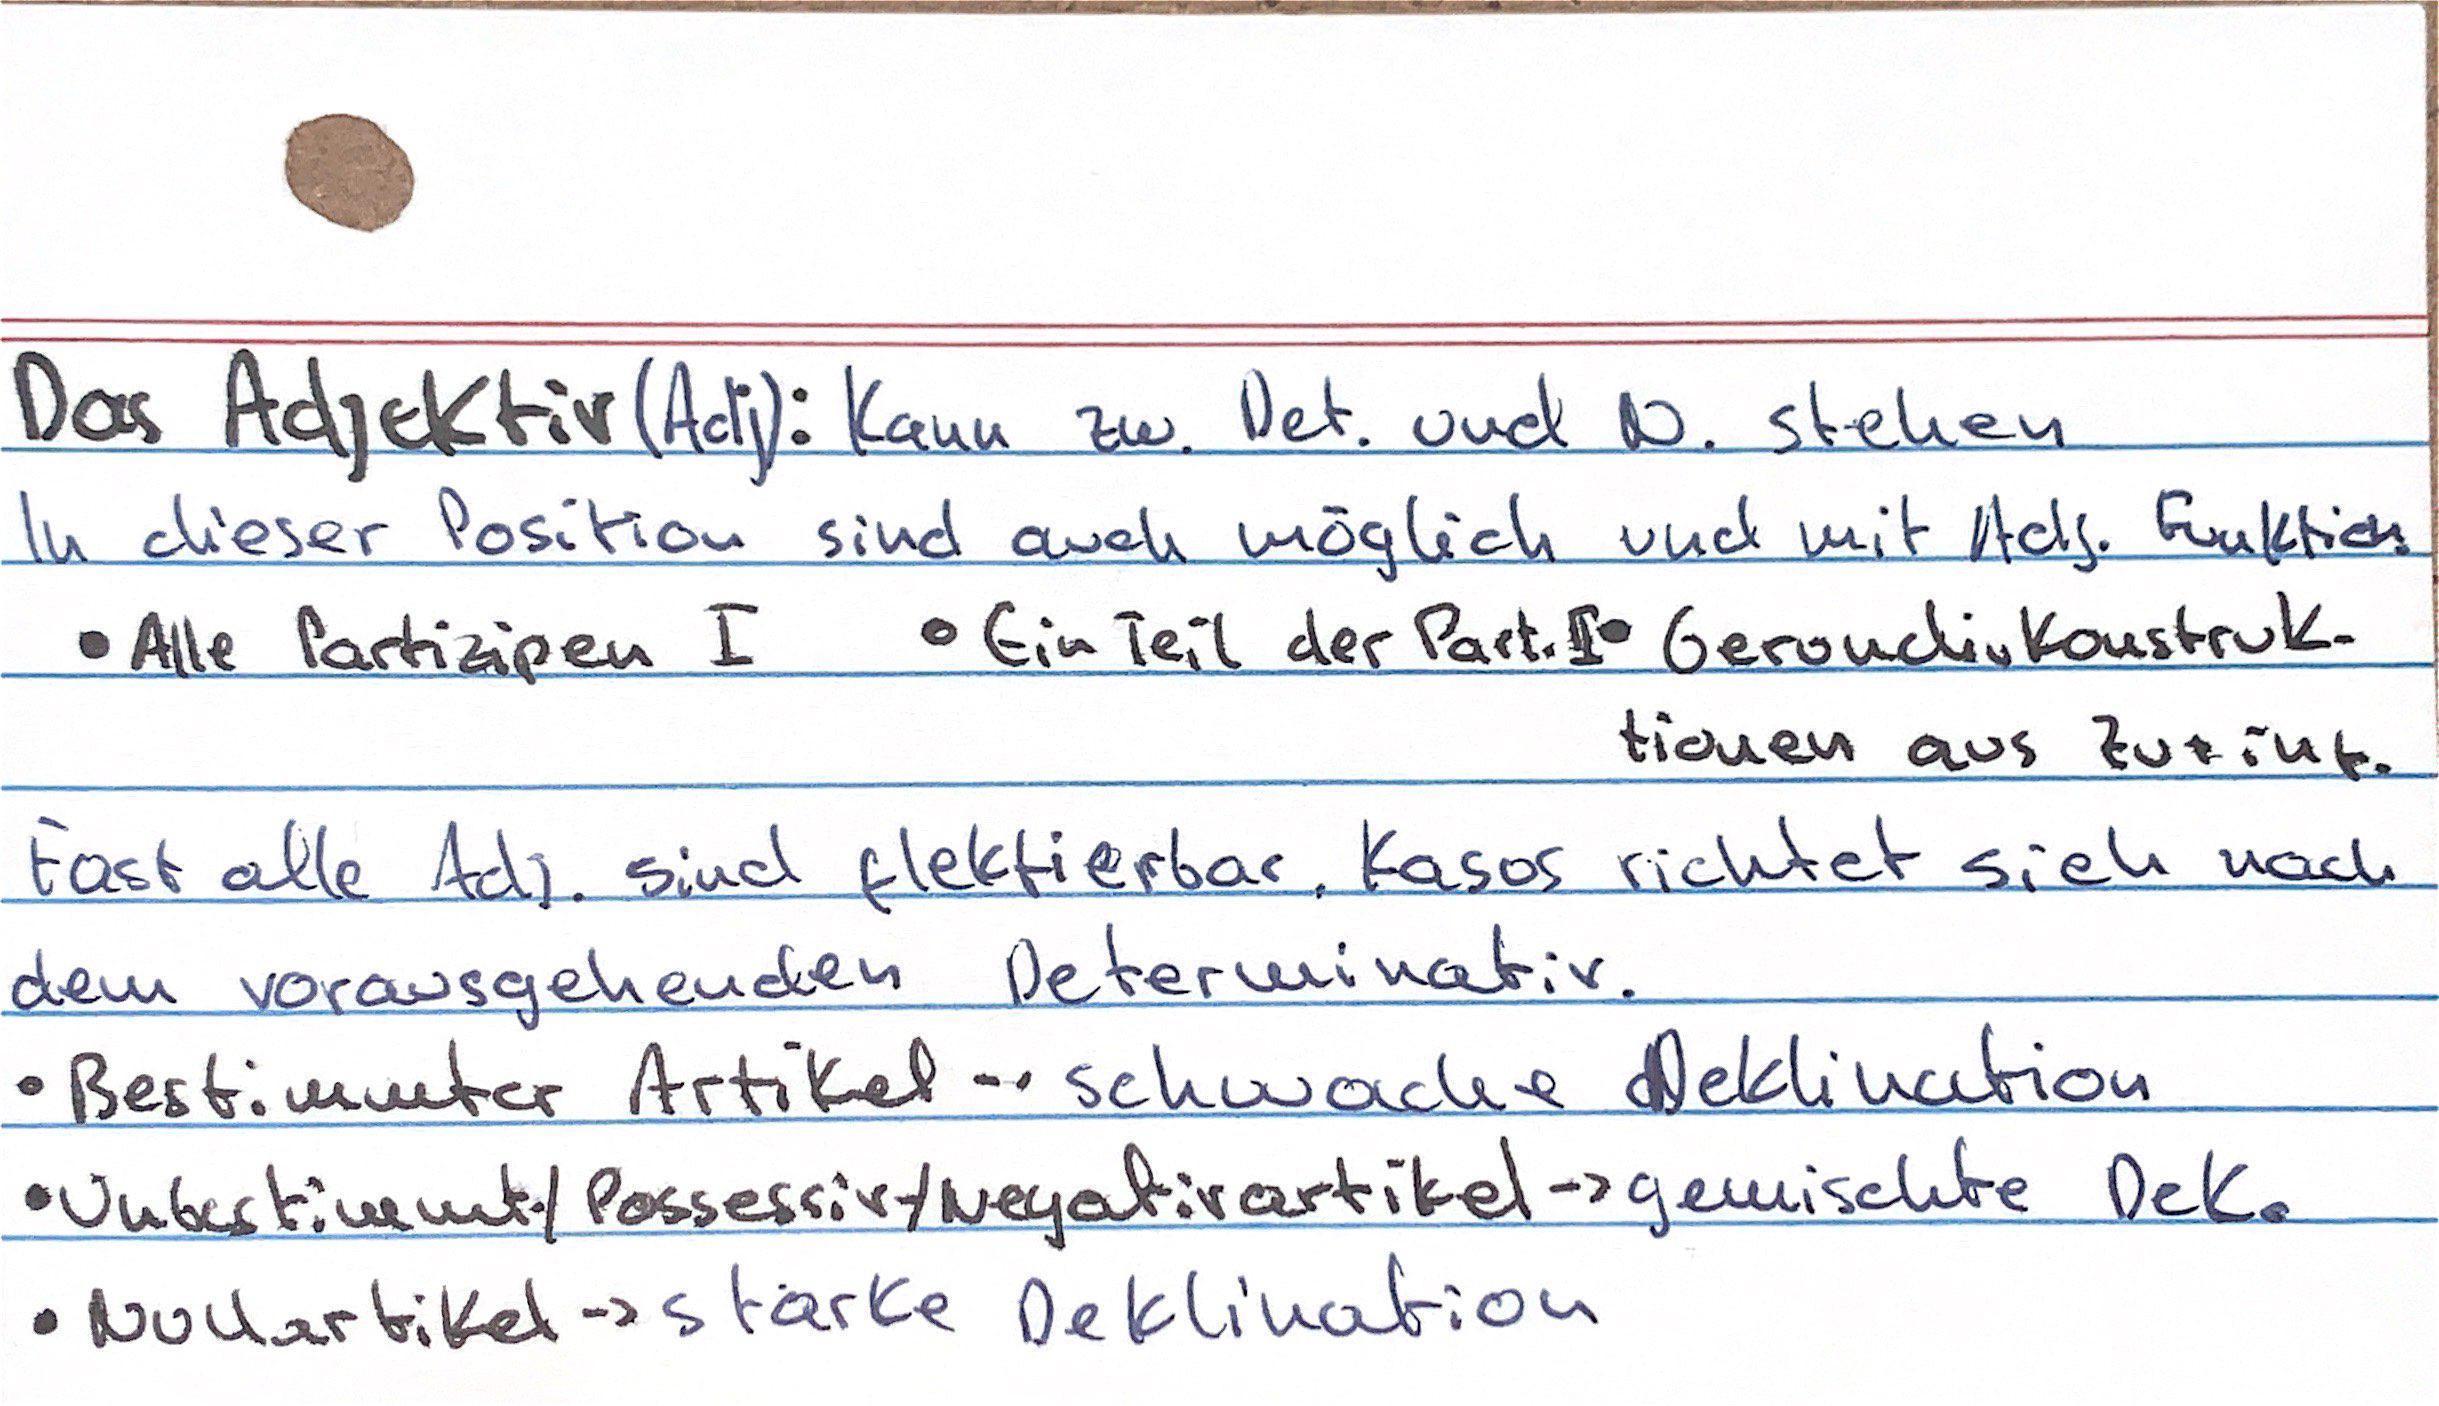 Das Adjektiv (Adj): Kann zw. Det. und N. stehen
In dieser Position sind auch möglich und mit Adj. Funktion
• Alle Partizipen I • Ein Teil der Part. II • Gerundivkonstruk-
tionen aus zu + inf.
Fast alle Adj. sind flektierbar. Kasus richtet sich nach
dem vorausgehenden Determinativ.
• Bestimmter Artikel -> schwache Deklination
• Unbestimmt-/Possessiv-/Negativartikel -> gemischte Dek.
• Nullartikel -> starke Deklination